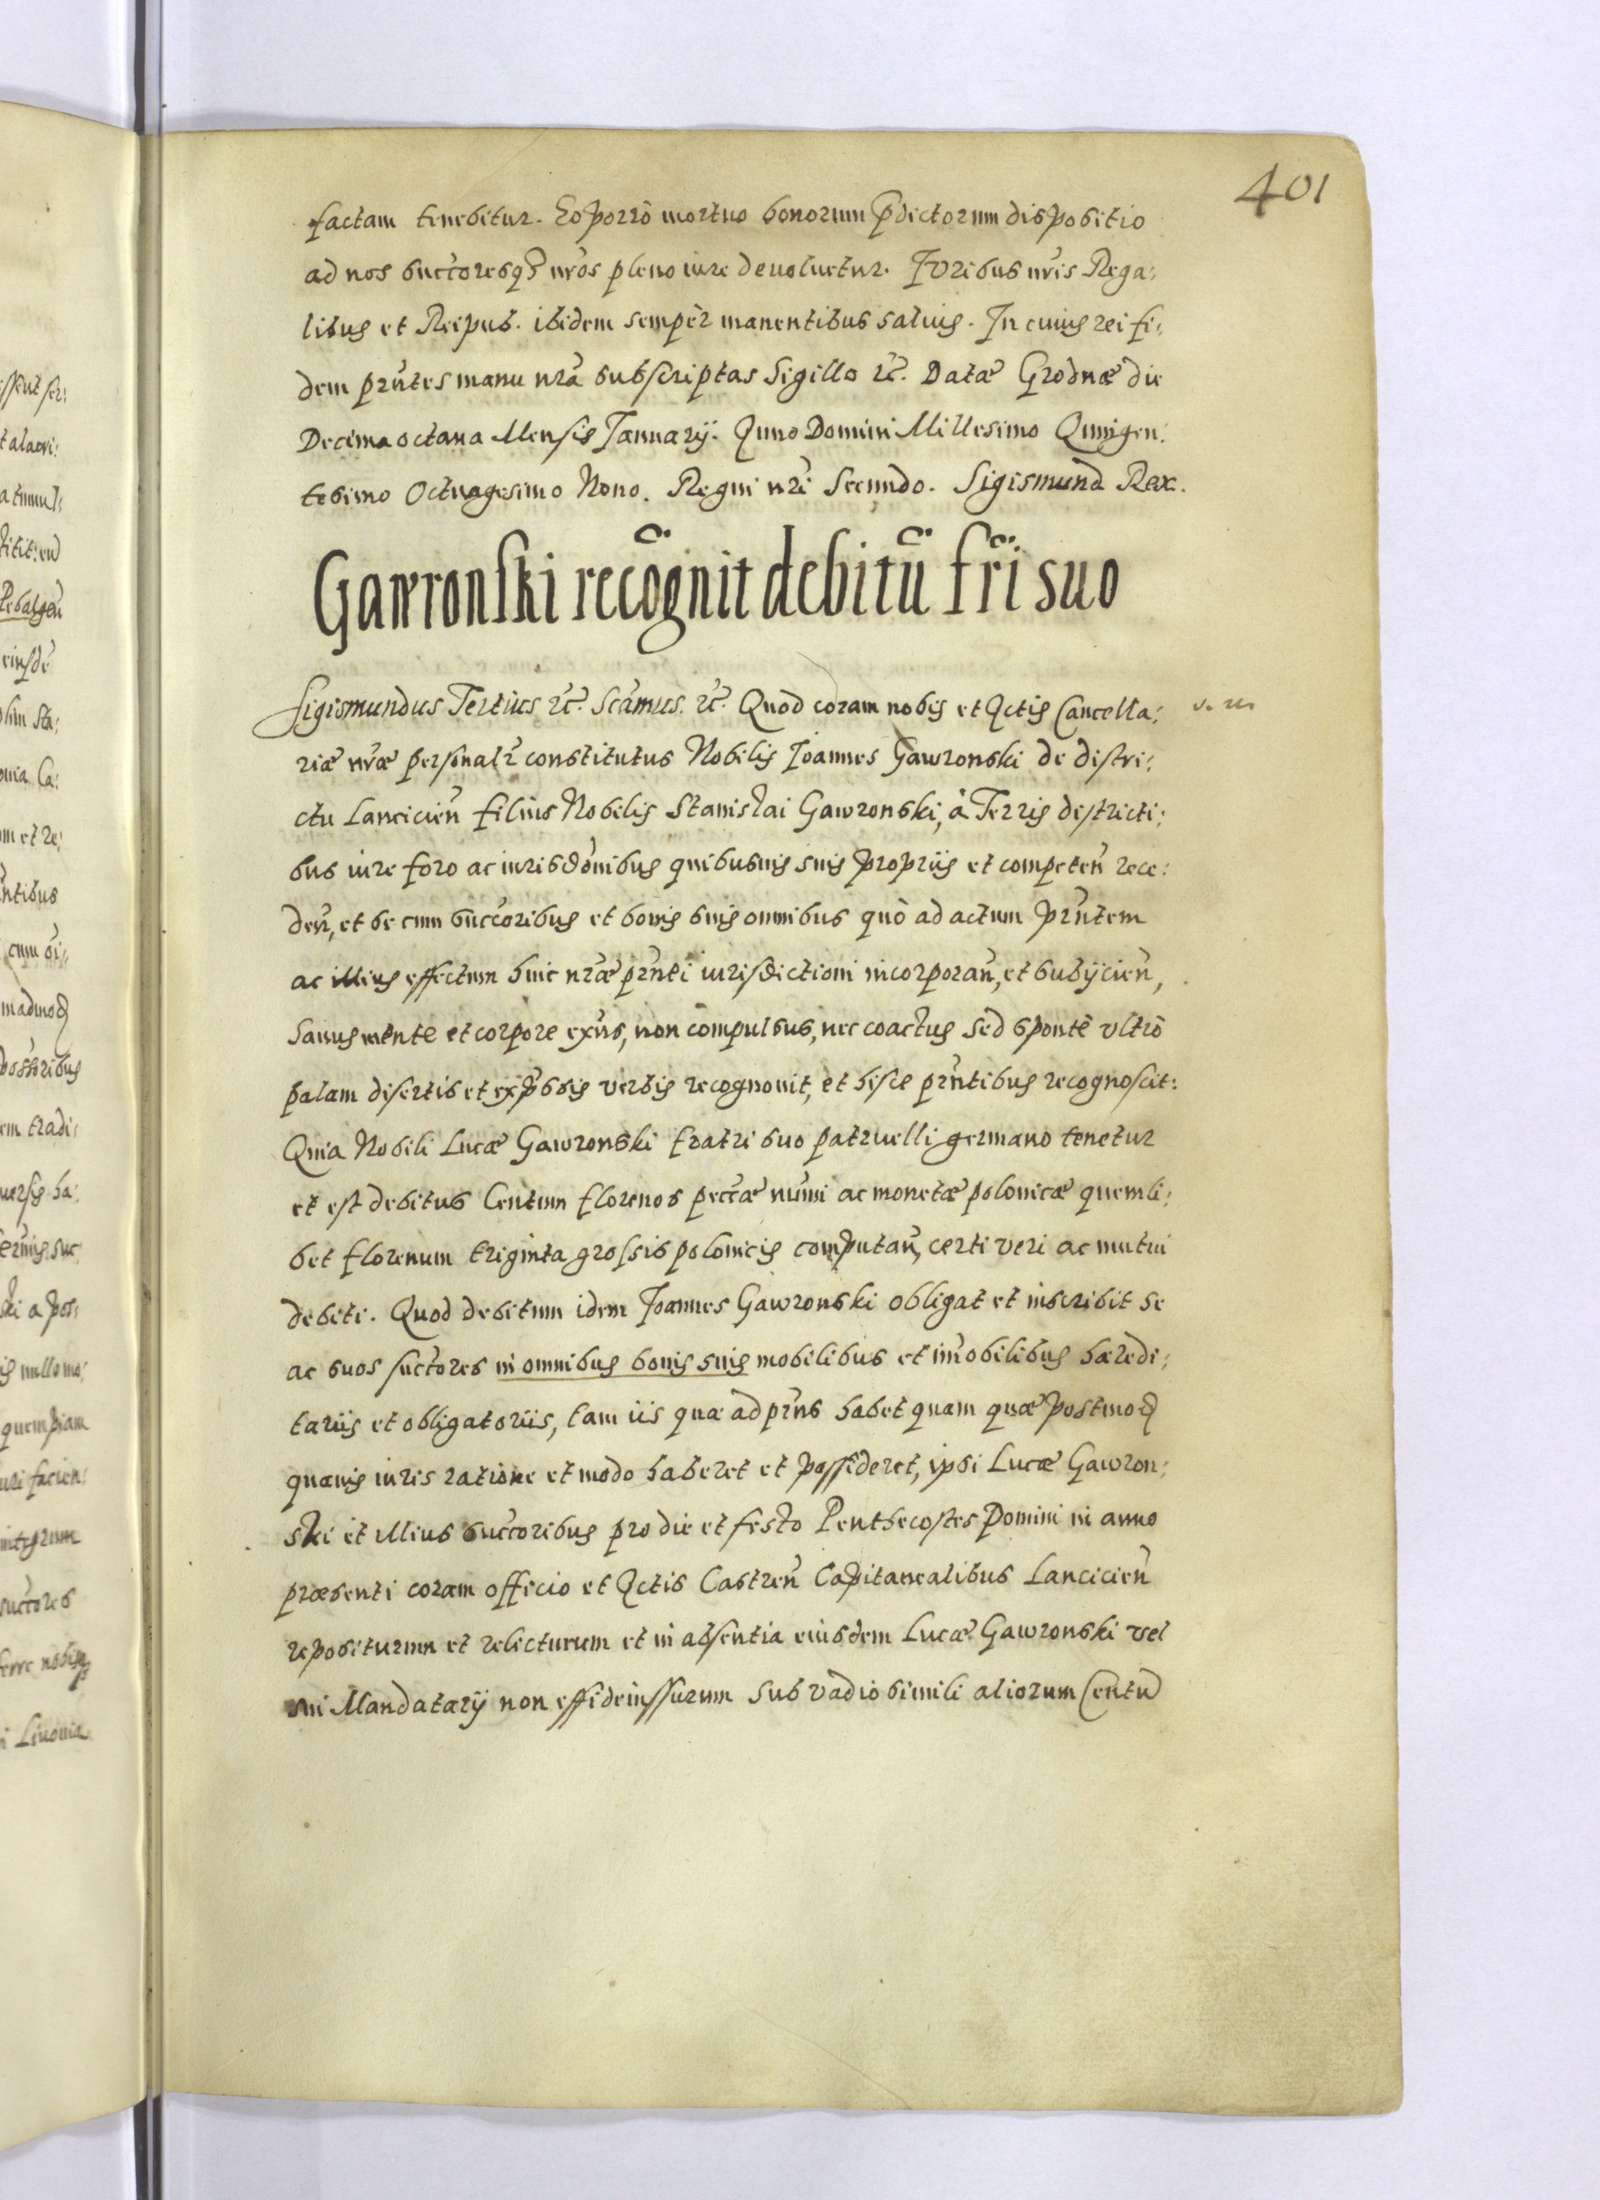 401
factam tenebitur. Eo porrò mortuo bonorum p̃dictorum dispositio
ad nos succ̃oresq₃ nr̃os pleno iure deuoluetur. Iuribus nr̃is Rega:
libus et Reipub. ibidem sempèr manentibus saluis. In cuius rei fi:
dem pr̃ntes manu nr̃a subscriptas Sigillo ec̃. Datæ Grodnæ die
Decima octaua Mensis Ianuarij. Anno Domini Millesimo Quingen:
tesimo Octuagesimo Nono. Regni nr̃i Secundo. Sigismund Rex.
Gawronski recõgnit debitũ fr̃i suo
Sigismundus Tertius ec̃. Sc̃amus. ec̃. Quod coram nobis et Actis Cancella:
riæ nr̃æ personalr̃ constitutus Nobilis Ioannes Gawronski de distri:
ctu Lancicien̄ filius Nobilis Stanislai Gawronski, à Terris districti:
bus iure foro ac iurisdõnibus quibusuis suis proprijs et competen̄ rece:
den̄, et se cum succ̃oribus et bonis suis omnibus quò ad actum pr̃ntem
ac illius effectum huic nr̃æ pr̃nti iurisdictioni incorporan̄, et subijcien̄,
sanus mente et corpore exn̄s, non compulsus, nec coactus sed spontè vltrò
palam disertis et exp̃ssis verbis recognouit, et hisce pr̃ntibus recognoscit:
Quia Nobili Lucæ Gawronski fratri suo patruelli germano tenetur
et est debitus Centum florenos pecc̃æ num̃i ac monetæ polonicæ quemli:
bet florenum triginta grossis polonicis computan̄, certi veri ac mutui
debiti. Quod debitum idem Ioannes Gawronski obligat et inscribit se
ac suos succ̃tores in omnibus bonis suis mobilibus et im̃obilibus hæredi:
tariis et obligatoriis, tam iis quæ ad pr̃ns habet quam quæ postmod̃
quæuis iuris ratione et modo haberet et possideret, ipsi Lucæ Gawron:
ski et illius succ̃oribus pro die et festo Penthecostes Domini in anno
præsenti coram officio et Actis Castren̄ Capitanealibus Lancicien̄
repositurum et relecturum et in absentia eiusdem Lucæ Gawronski vel
sui Mandatarij non effideiussurum sub vadio simili aliorum Centũ